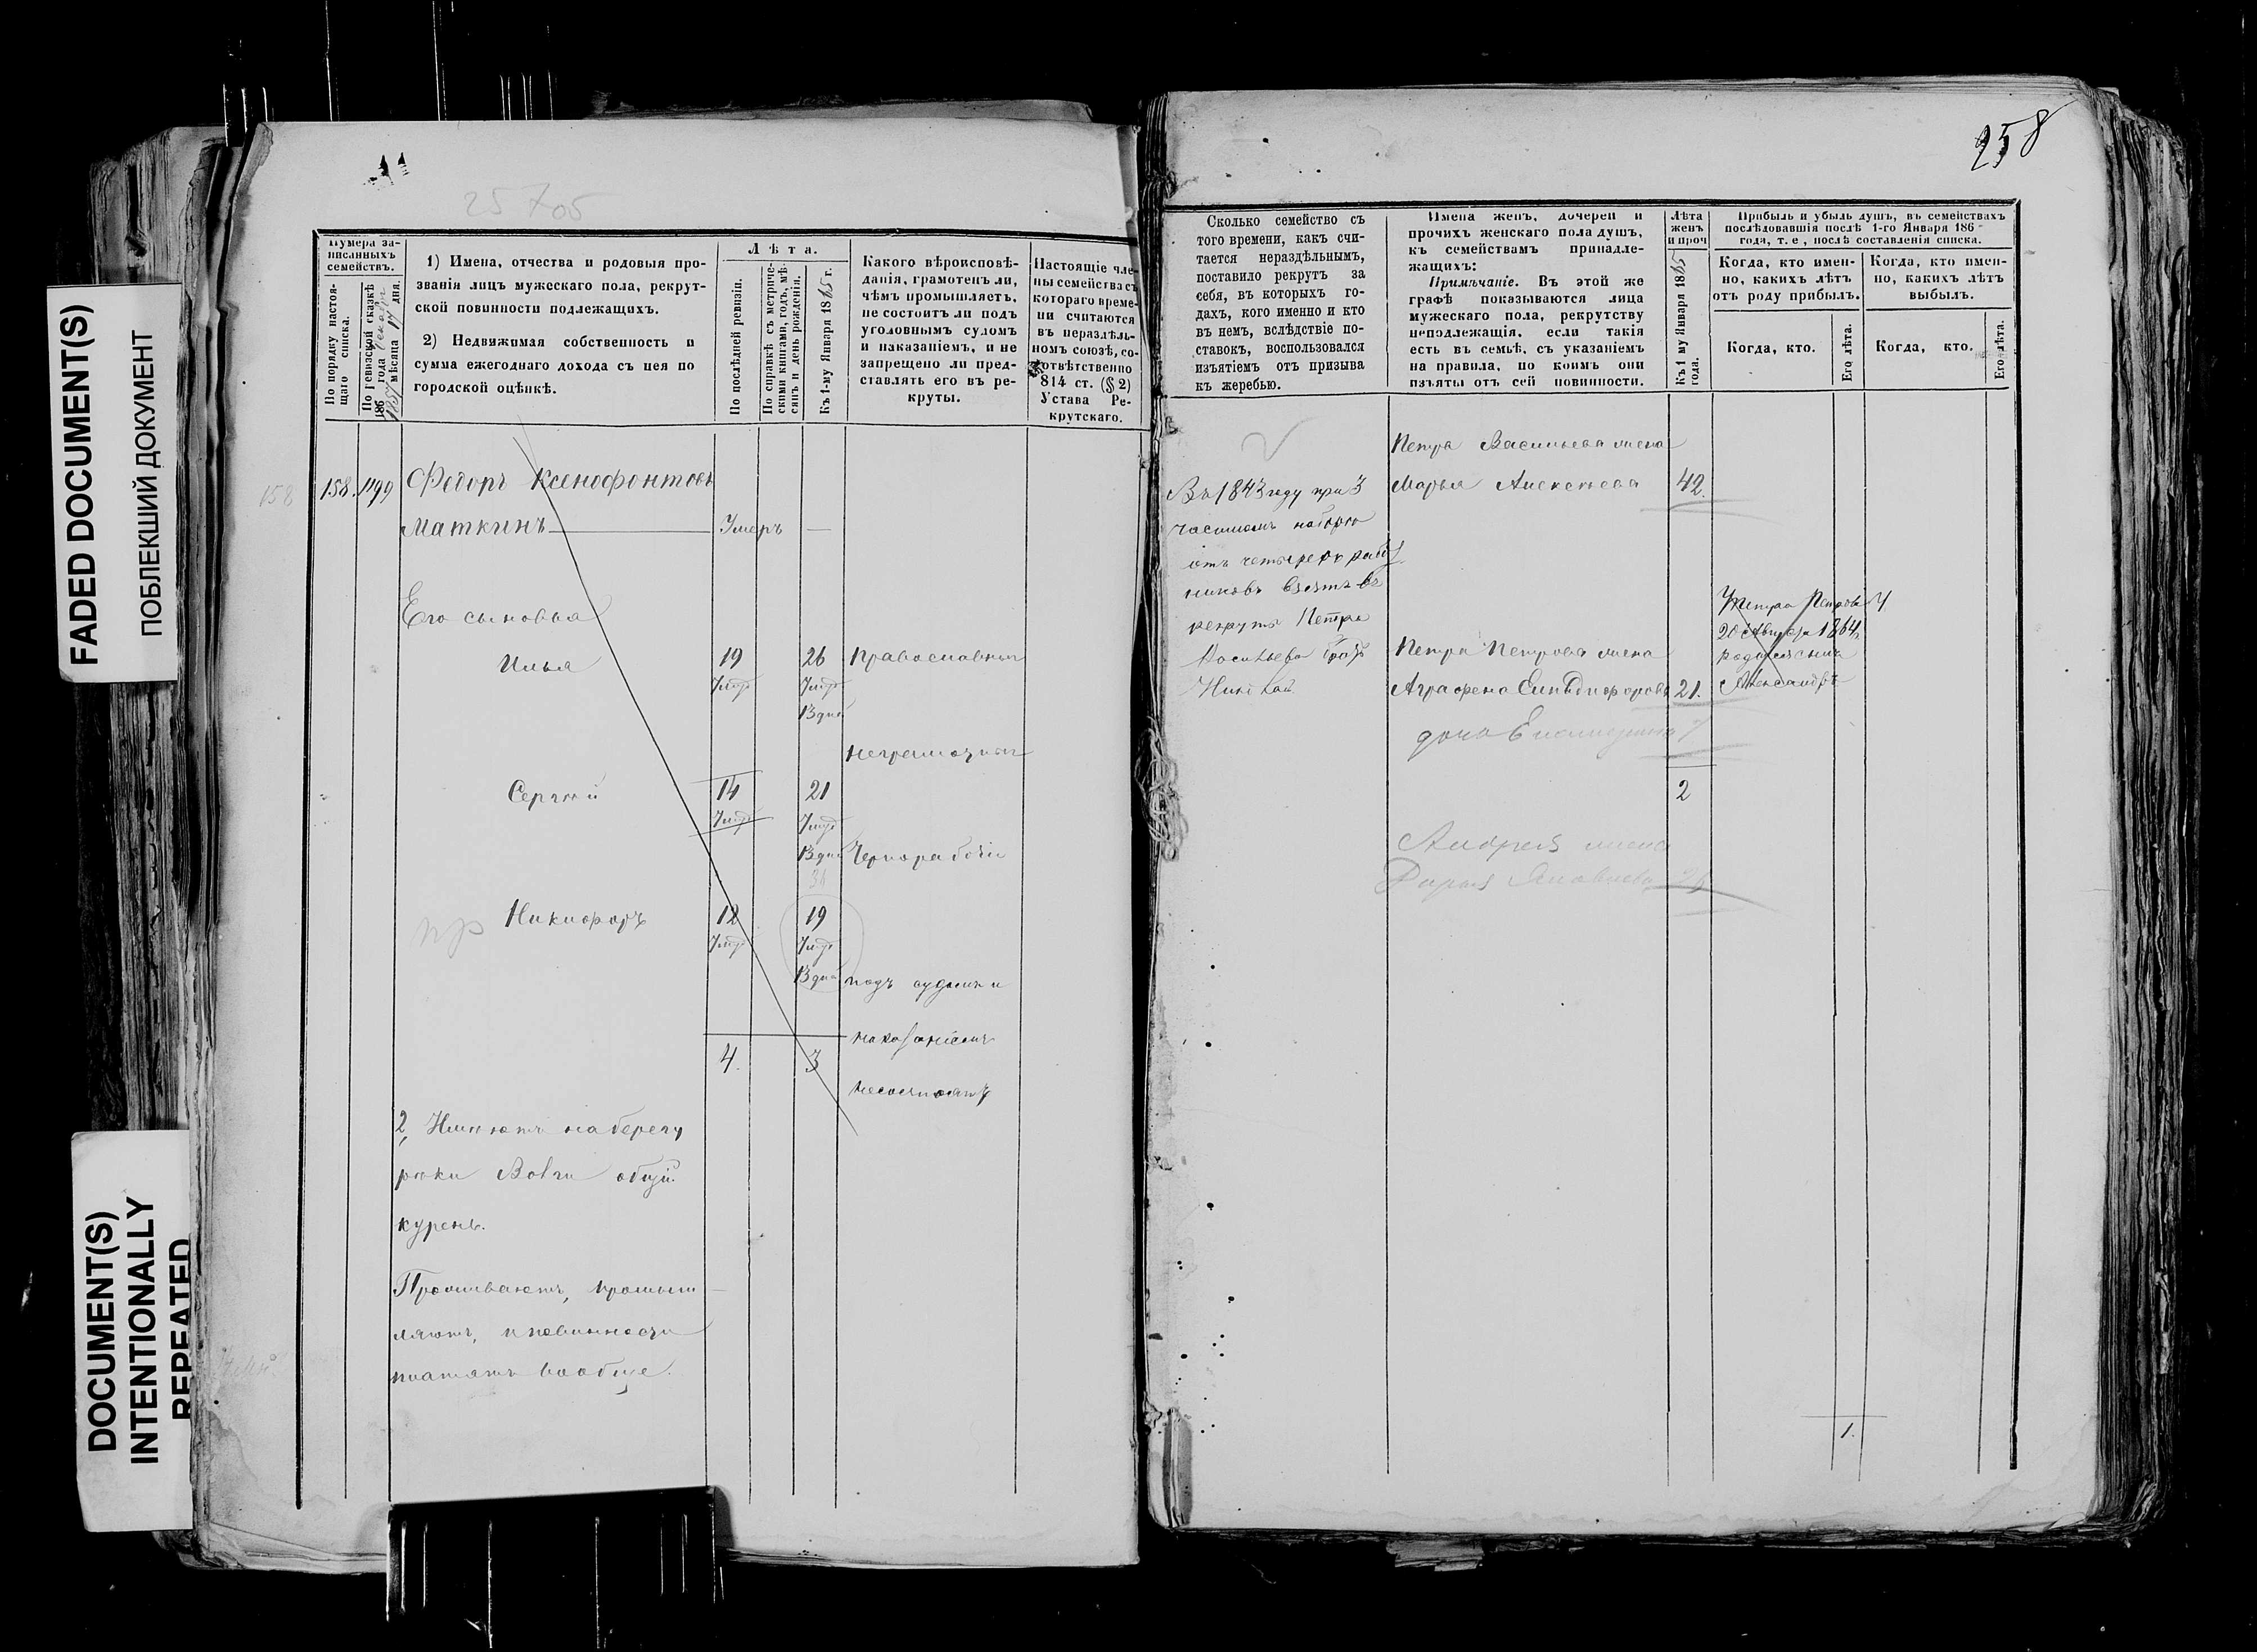 FADED DOCUMENT(S)
ПОБЛЕКШИЙ ДОКУМЕНТ
DOCUMENT(S)
INTENTIONALLY
REPEATED
25705
Нумера за-
писанныхъ
семействъ.
По порядку настоя-
щаго списка.
По ревизской сказкѣ
186 года
1857 мѣсяца 17 дня.
1) Имена, отчества и родовыя про-
званія лицъ мужескаго пола, рекрут-
ской повинности подлежащихъ.
2) Недвижимая собственность и
сумма ежегоднаго дохода съ нея по
городской оцѣнкѣ.
Лѣта.
По послѣдней ревизіи.
По справкѣ съ метриче-
скими книгами, годъ, мѣ-
сяцъ и день рожденія.
Къ 1-му Января 1865 г.
Какого вѣроисповѣ-
данія, грамотенъ ли,
чѣмъ промышляетъ,
не состоитъ ли подъ
уголовнымъ судомъ
и наказаніемъ, и не
запрещено ли пред-
ставлять его въ ре-
круты.
Настоящіе чле-
ны семейства съ
котораго време-
ни считаются
въ нераздѣль-
номъ союзѣ, со-
отвѣтственно
814 ст. (§ 2)
Устава Ре-
крутскаго.
158
158. 1199 Федоръ Ксенофонтовъ
Маткинъ Умеръ —
Его сыновья
Илья 19 26 православный
13 дней
неграмотный
Сергѣй 14 21
13 дней Чернорабочій
Никифоръ 12 19
13 дней подъ судомъ и
наказаніемъ
4. 3
несостоятъ
2, Имѣютъ на берегу
рѣки Волги общій
курень.
Проживаютъ, промыш
ляютъ, и повинности
платятъ вообще.
258
Сколько семейство съ
того времени, какъ счи-
тается нераздѣльнымъ,
поставило рекрутъ за
себя, въ которыхъ го-
дахъ, кого именно и кто
въ немъ, вслѣдствіе по-
ставокъ, воспользовался
изъятіемъ отъ призыва
къ жеребью.
Имена женъ, дочерей и
прочихъ женскаго пола душъ,
къ семействамъ принадле-
жащихъ:
Примѣчаніе. Въ этой же
графѣ показываются лица
мужескаго пола, рекрутству
неподлежащія, если такія
есть въ семьѣ, съ указаніемъ
на правила, по коимъ они
изъяты отъ сей повинности.
Лѣта
женъ
и проч
Къ 1 му Января 1865
года.
Прибыль и убыль душъ, въ семействахъ
послѣдовавшія послѣ 1-го Января 186
года, т. е, послѣ составленія списка.
Когда, кто имен-
но, какихъ лѣтъ
отъ роду прибылъ.
Когда, кто имен-
но, какихъ лѣтъ
выбылъ.
Когда, кто.
Его лѣта.
Когда, кто.
Его лѣта.
Въ 1843 году при 3
частномъ наборѣ
отъ четырехъ работ
никовъ взятъ въ
рекруты Петра
Васильева братъ
Николай
Петра Васильева жена
Марья Алексѣева 42.
Петра Петрова жена
Аграфена 21.
дочь
2
Андрея жена
Дарья Яковлева
У Петра Петрова
20 Августа 1864
родился сынъ
Александръ
1.